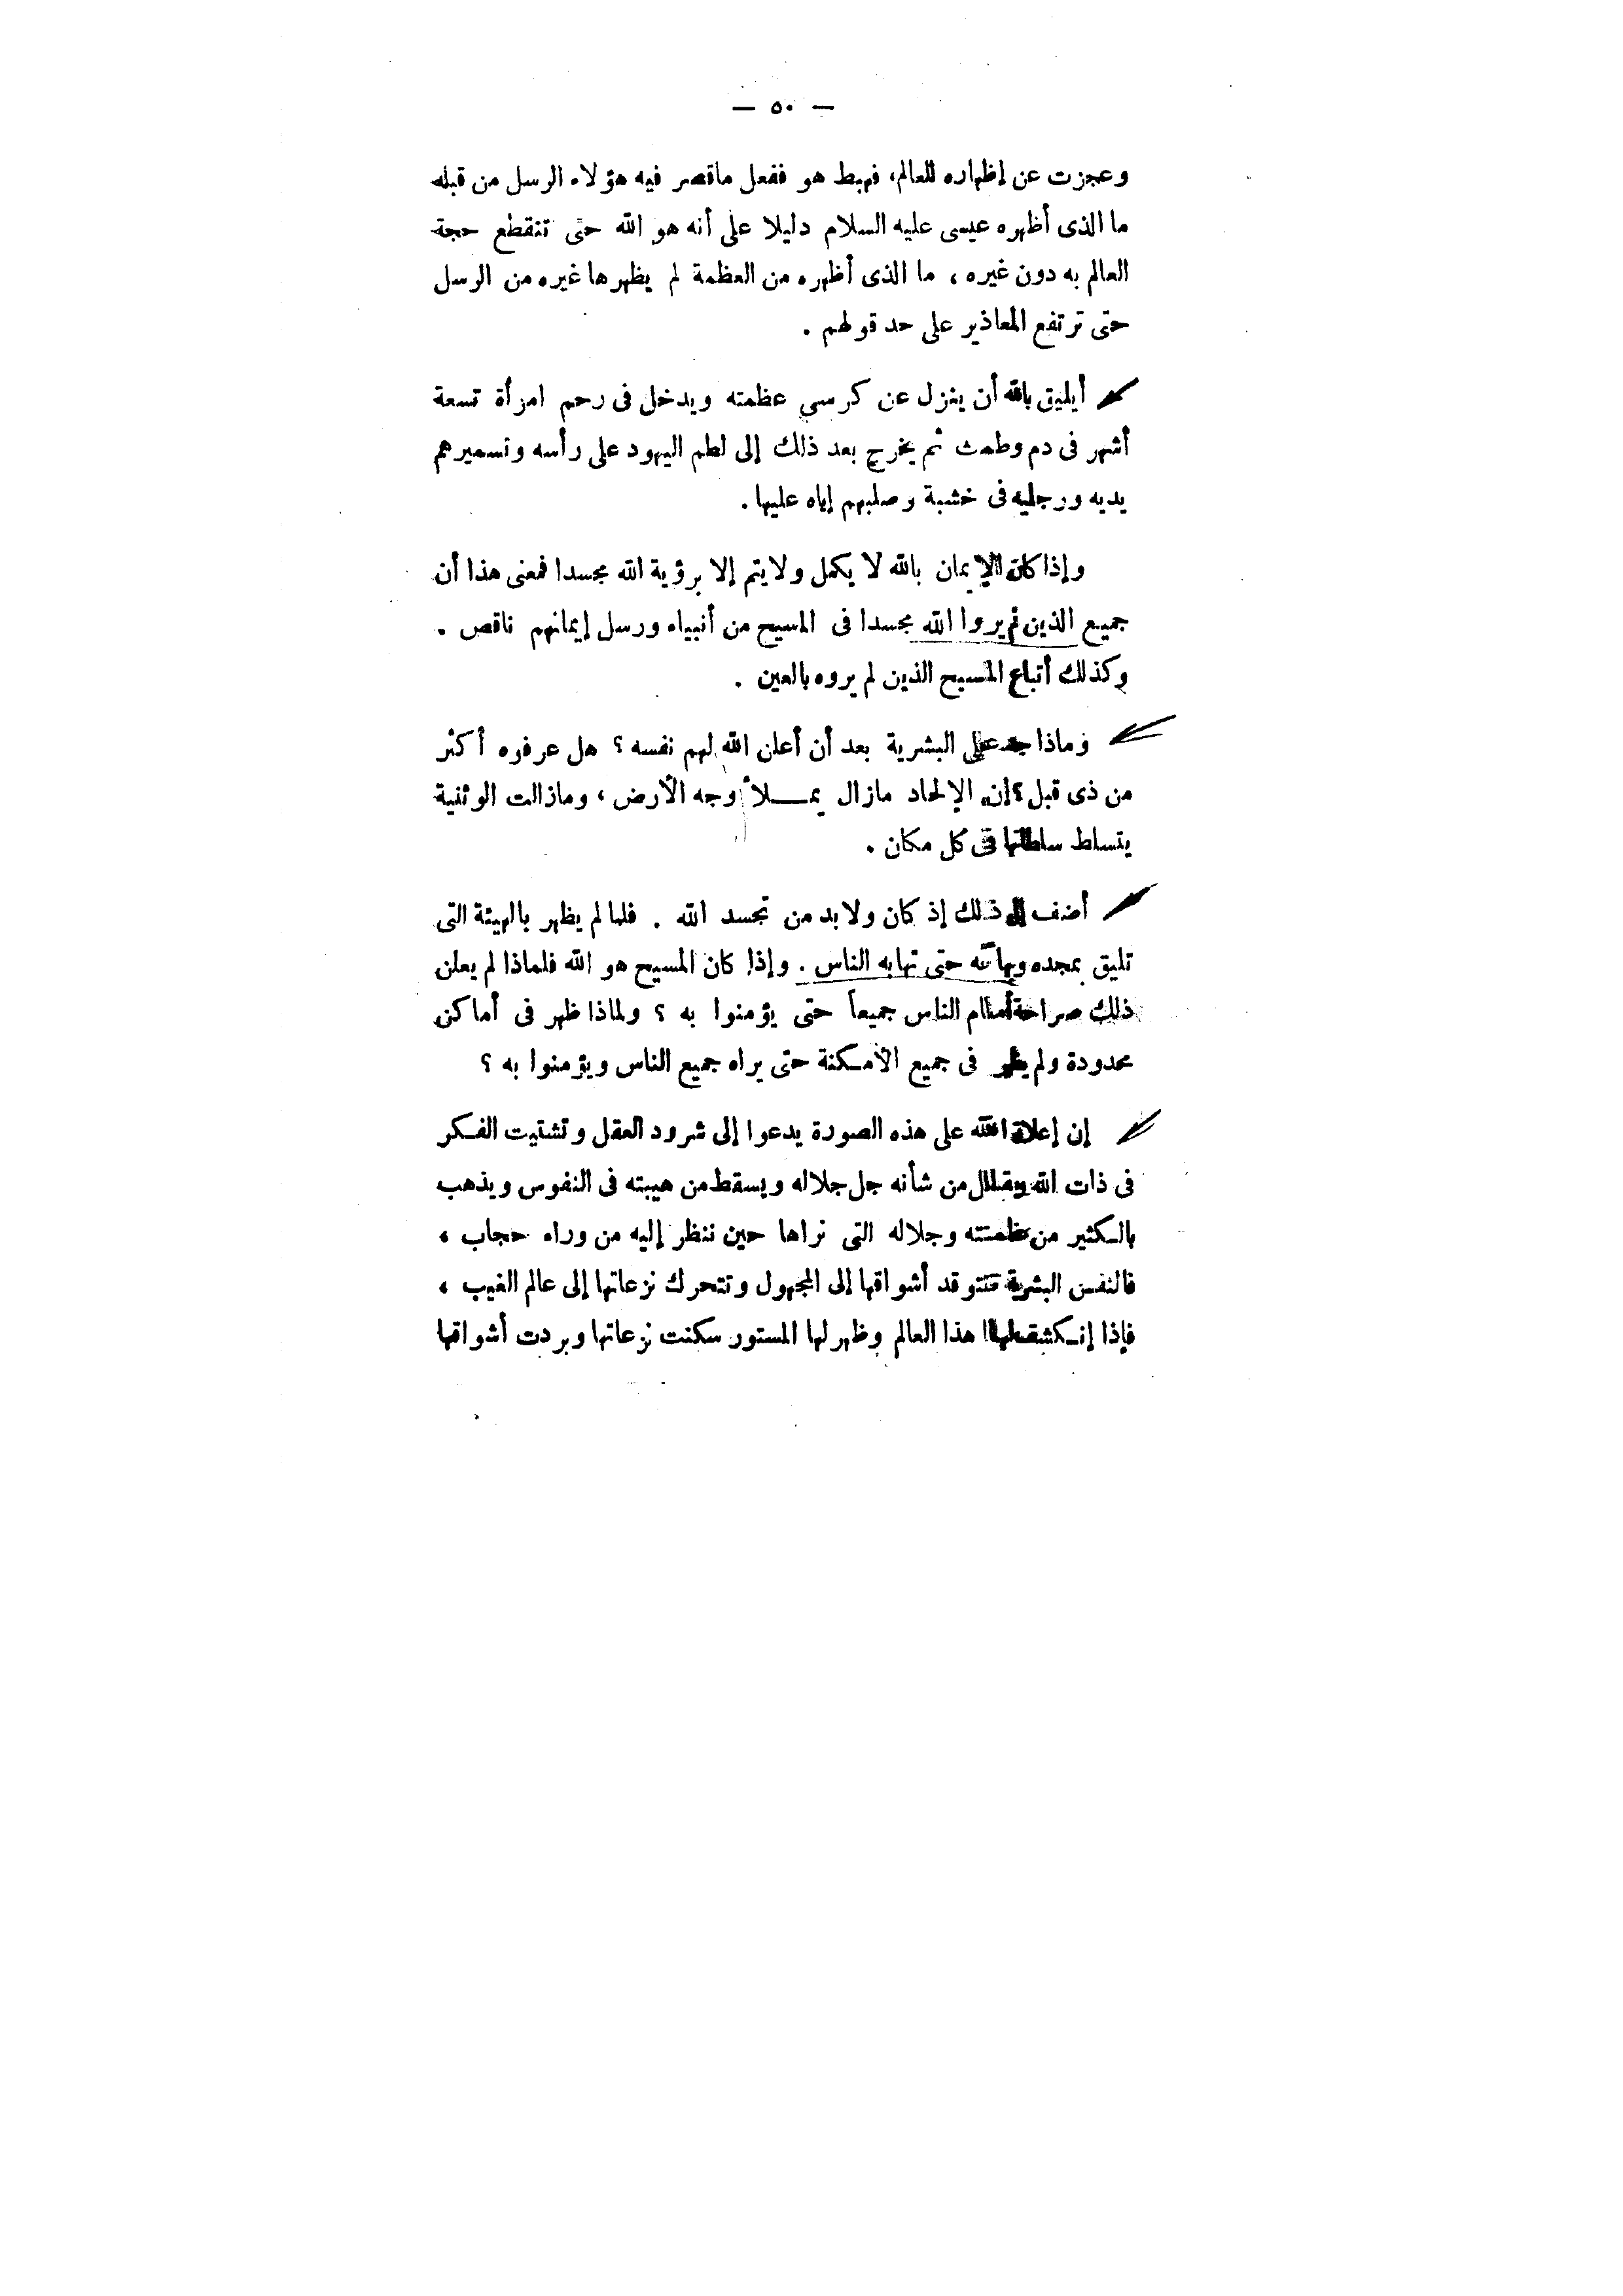 — ٥٠ —
وعجزت عن إظهاره للعالم، فهبط هو ففعل ماقصر فيه هؤلاء الرسل من قبله
ما الذى أظهره عيسى عليه السلام دليلا على أنه هو الله حتى تنقطع حجة
العالم به دون غيره ، ما الذى أظهره من العظمة لم يظهرها غيره من الرسل
حتى ترتفع المعاذير على حد قولهم .
أيليق بالله أن ينزل عن كرسي عظمته ويدخل فى رحم امرأة تسعة
أشهر فى دم وطمث ثم يخرج بعد ذلك إلى لطم اليهود على رأسه وتسميرهم
يديه ورجليه فى خشبة وصلبهم إياه عليها .
وإذا كان الإيمان بالله لا يكمل ولا يتم إلا برؤية الله مجسدا فمعنى هذا أن
جميع الذين لم يروا الله مجسدا فى المسيح من أنبياء ورسل إيمانهم ناقص .
وكذلك أتباع المسيح الذين لم يروه بالعين .
وماذا جد على البشرية بعد أن أعلن الله لهم نفسه ؟ هل عرفوه أكثر
من ذى قبل ؟ إن الإلحاد مازال يمــلأ وجه الأرض ، ومازالت الوثنية
يتساط ساطانها فى كل مكان .
أضف إلى ذلك إذ كان ولابد من تجسد الله . فلما لم يظهر بالهيئة التى
تليق بمجده وبهائه حتى تهابه الناس . وإذا كان المسيح هو الله فلماذا لم يعلن
ذلك صراحة أمام الناس جميعاً حتى يؤمنوا به ؟ ولماذا ظهر فى أماكن
محدودة ولم يظهر فى جميع الأمكنة حتى يراه جميع الناس ويؤمنوا به ؟
إن إعلان الله على هذه الصورة يدعوا إلى شرود العقل وتشتيت الفكر
فى ذات الله ويقلل من شأنه جل جلاله ويسقط من هيبته فى النفوس ويذهب
بالكثير من عظمته وجلاله التى نراها حين ننظر إليه من وراء حجاب ،
فالنفس البشرية تتوقد أشواقها إلى المجهول وتتحرك نزعاتها إلى عالم الغيب ،
فإذا إنكشف لها هذا العالم وظهر لها المستور سكنت نزعاتها وبردت أشواقها